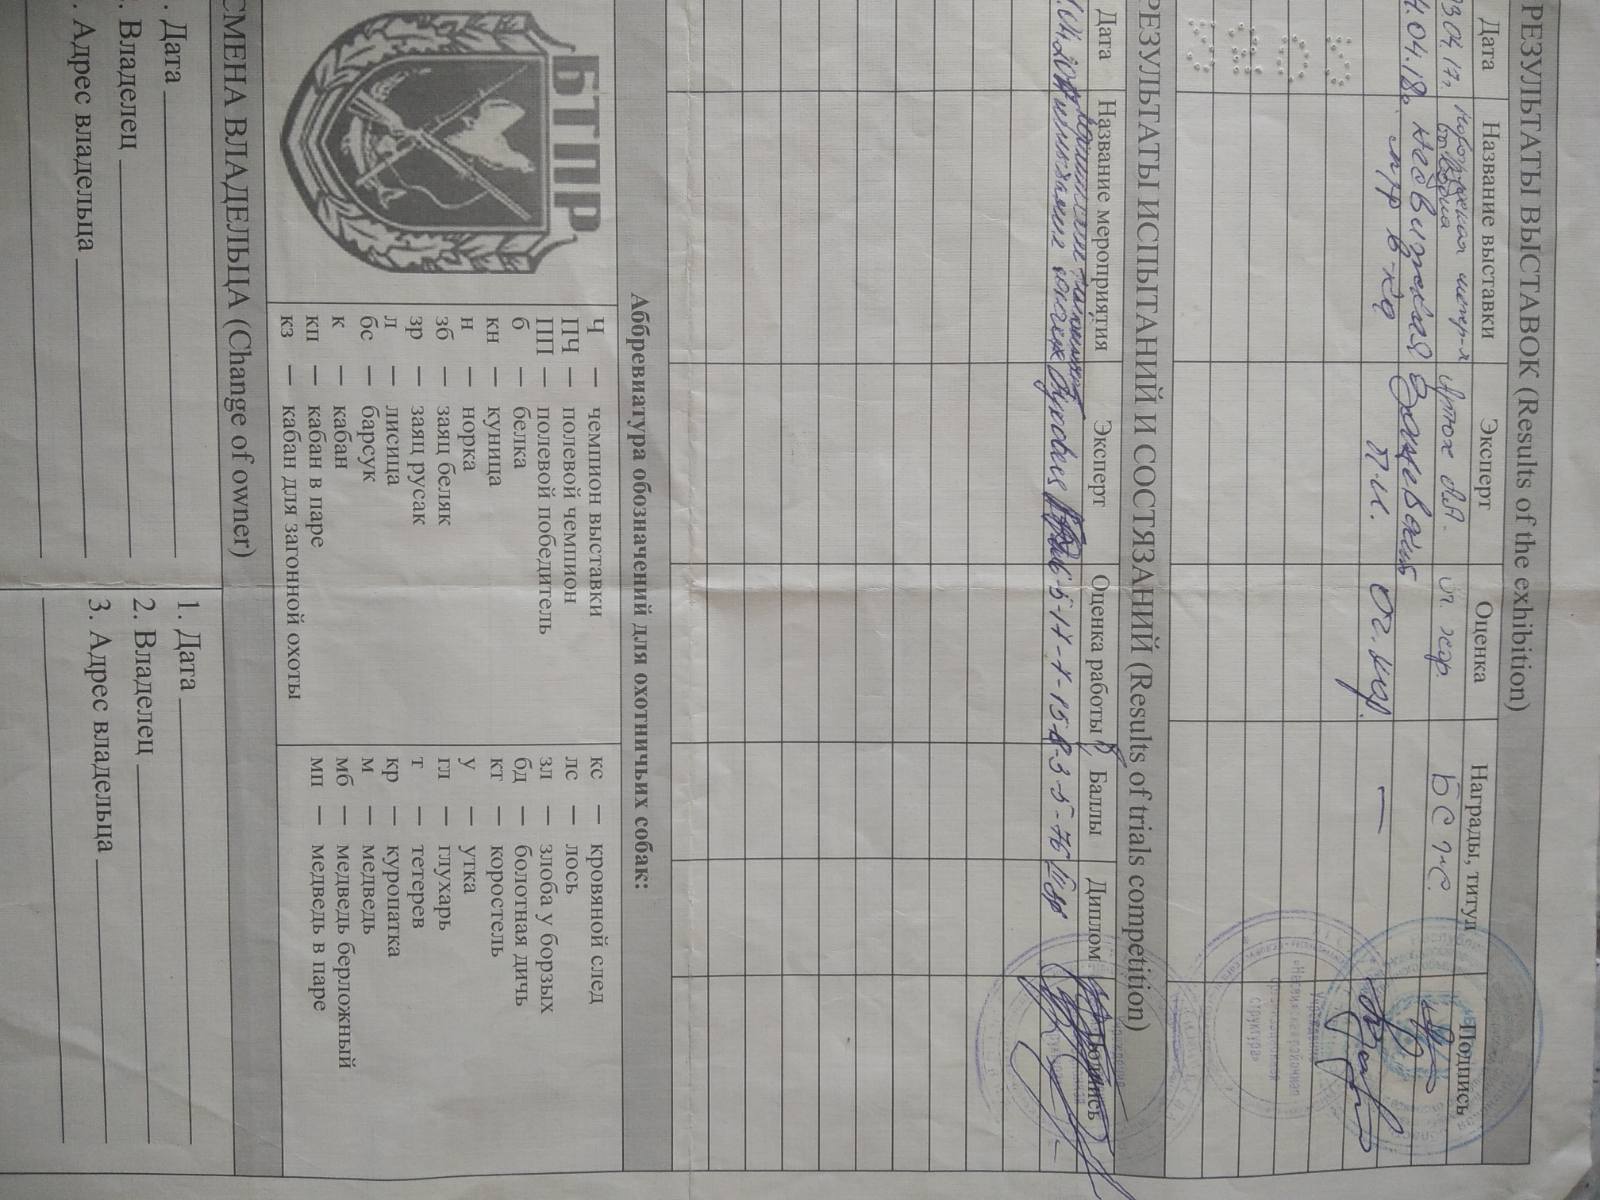 РЕЗУЛЬТАТЫ ВЫСТАВОК (Results of the exhibition)
Дата Название выставки Эксперт Оценка Награды, титул Подпись
03.04.17г. выставка Артюх А.А. оч. хор. БС
4.04.18г. Несвижская
МРР П.И. оч. хор. —
РЕЗУЛЬТАТЫ ИСПЫТАНИЙ И СОСТЯЗАНИЙ (Results of trials competition)
Дата Название мероприятия Эксперт Оценка работы Баллы Диплом Подпись
Аббревиатура обозначений для охотничьих собак:
БГПР
Ч — чемпион выставки
ПЧ — полевой чемпион
ПП — полевой победитель
б — белка
кн — куница
н — норка
зб — заяц беляк
зр — заяц русак
л — лисица
бс — барсук
к — кабан
кп — кабан в паре
кз — кабан для загонной охоты
кс — кровяной след
лс — лось
зл — злоба у борзых
бд — болотная дичь
кт — коростель
у — утка
гл — глухарь
т — тетерев
кр — куропатка
м — медведь
мб — медведь берложный
мп — медведь в паре
СМЕНА ВЛАДЕЛЬЦА (Change of owner)
. Дата
. Владелец
. Адрес владельца
1. Дата
2. Владелец
3. Адрес владельца